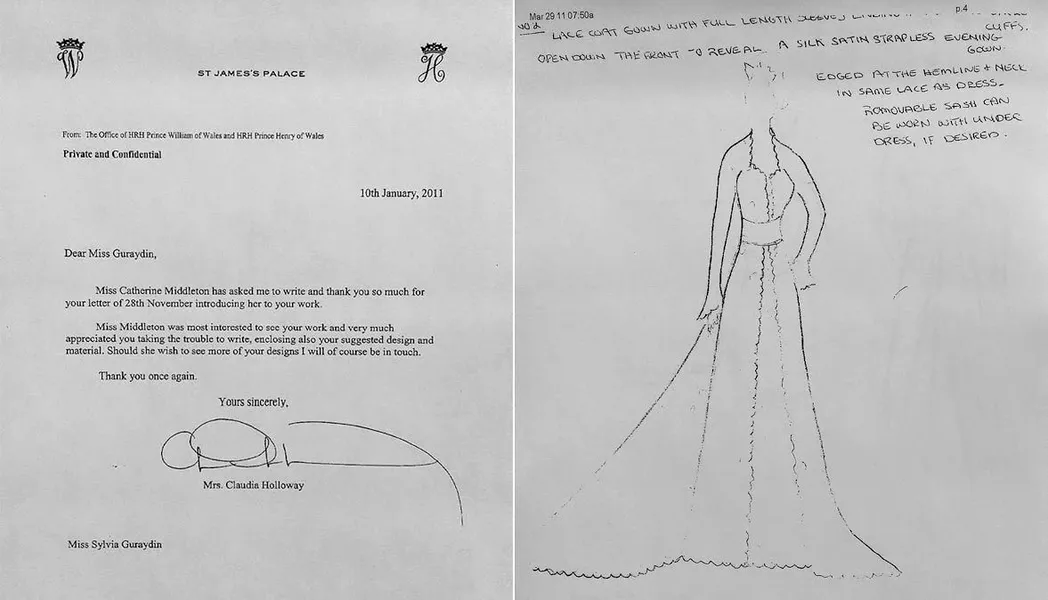 W
H
ST JAMES'S PALACE
From: The Office of HRH Prince William of Wales and HRH Prince Henry of Wales
Private and Confidential
10th January, 2011
Dear Miss Guraydin,
Miss Catherine Middleton has asked me to write and thank you so much for
your letter of 28th November introducing her to your work.
Miss Middleton was most interested to see your work and very much
appreciated you taking the trouble to write, enclosing also your suggested design and
material. Should she wish to see more of your designs I will of course be in touch.
Thank you once again.
Yours sincerely,
Mrs. Claudia Holloway
Miss Sylvia Guraydin
Mar 29 11 07:50a
p.4
LACE COAT GOWN WITH FULL LENGTH SLEEVES
CUFFS.
OPEN DOWN THE FRONT TO REVEAL A SILK SATIN STRAPLESS EVENING
GOWN.
EDGED AT THE HEMLINE + NECK
IN SAME LACE AS DRESS.
ROMOVABLE SASH CAN
BE WORN WITH UNDER
DRESS, IF DESIRED.